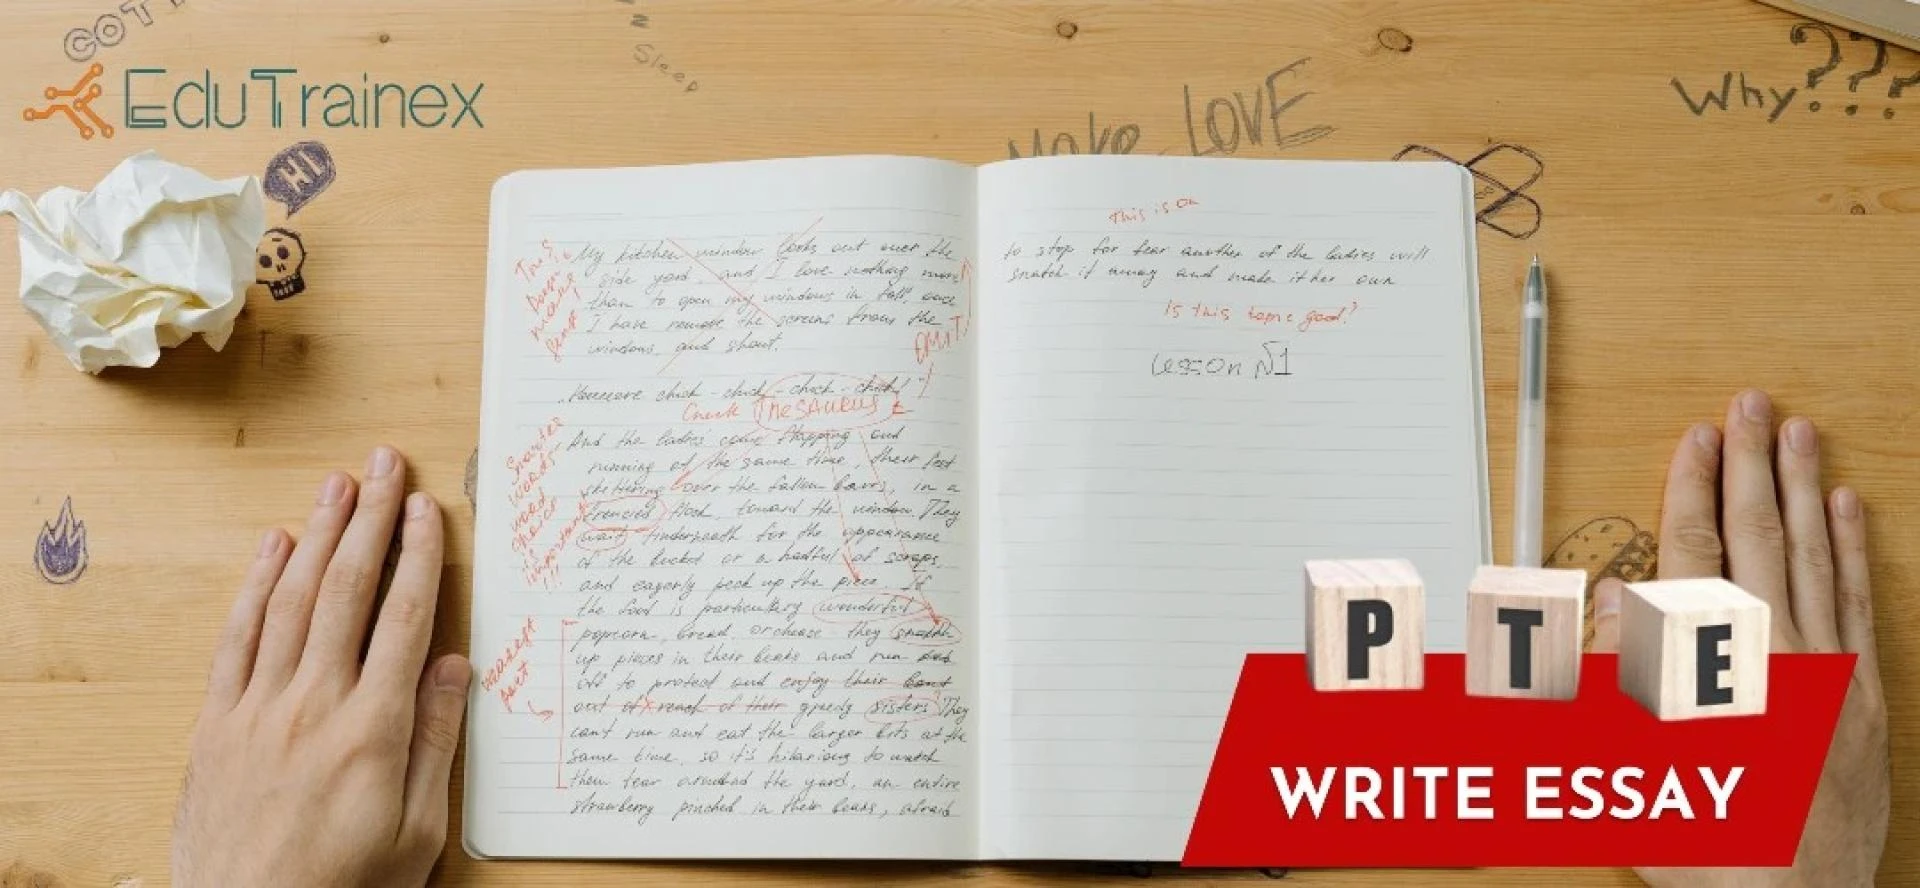 COTT
z
Sleep
EDUTrainex
HI
Make LOVE
Why???
This
Doesn't
make
sense!
My kitchen window looks out over the
side yard, and I love nothing more
than to open my windows in fall, once
I have remove the screens from the
windows, and shout.
OMIT!
chick - chick - chick - chick!"
Check THESAURUS
Smarter
words -
word
choice
is
important
!!!
And the ladies come flapping and
running at the same time, their feet
skittering over the fallen leaves, in a
frenzied flock, toward the window. They
wait underneath for the appearance
of the bucket or a hadful of scraps,
and eagerly peck up the piece. If
the food is particullary wonderful
weakest
part
popcorn, bread, or cheese - they snatch
up pieces in their beaks and run
off to protect and enjoy their
out of reach of their greedy sisters. They
can't run and eat the larger bits at the
same time, so it's hilarious to watch
them tear around the yard, an entire
strawberry pinched in their beaks, afraid
This is on
to stop for fear another of the ladies will
snatch it away and make it her own
Is this topic good?
Lesson №1
PTE
WRITE ESSAY